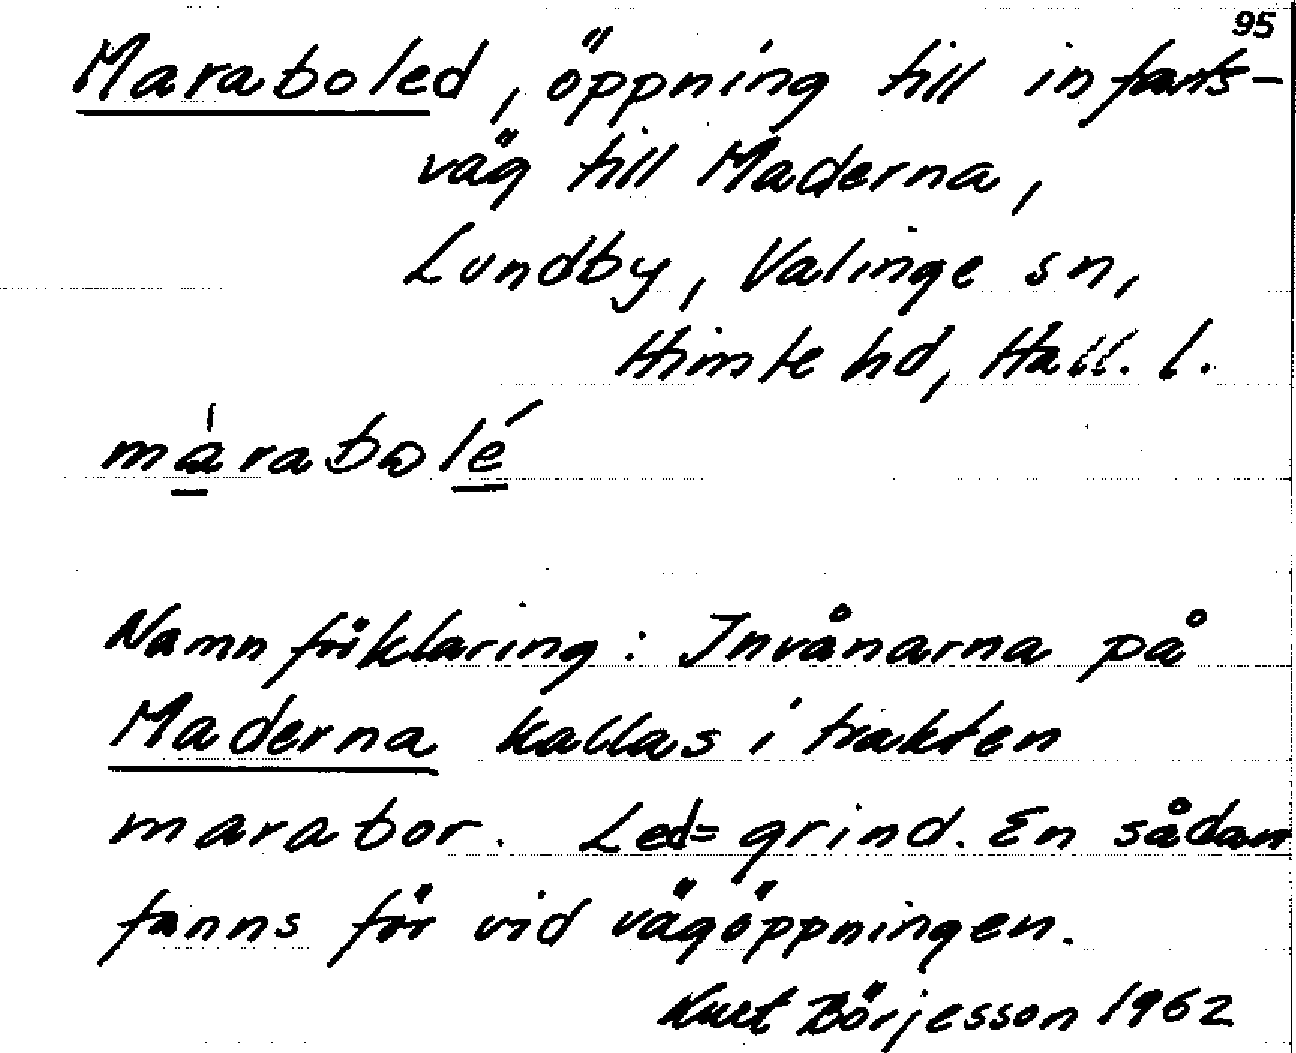 95
Maraboled, öppning till infarts-
väg till Maderna,
Lundby, Valinge sn,
Himle hd, Hall. l.
màrabolé
Namnförklaring: Invånarna på
Maderna kallas i trakten
marabor. Led= grind. En sådan
fanns för vid vägöppningen.
Kurt Börjesson 1962